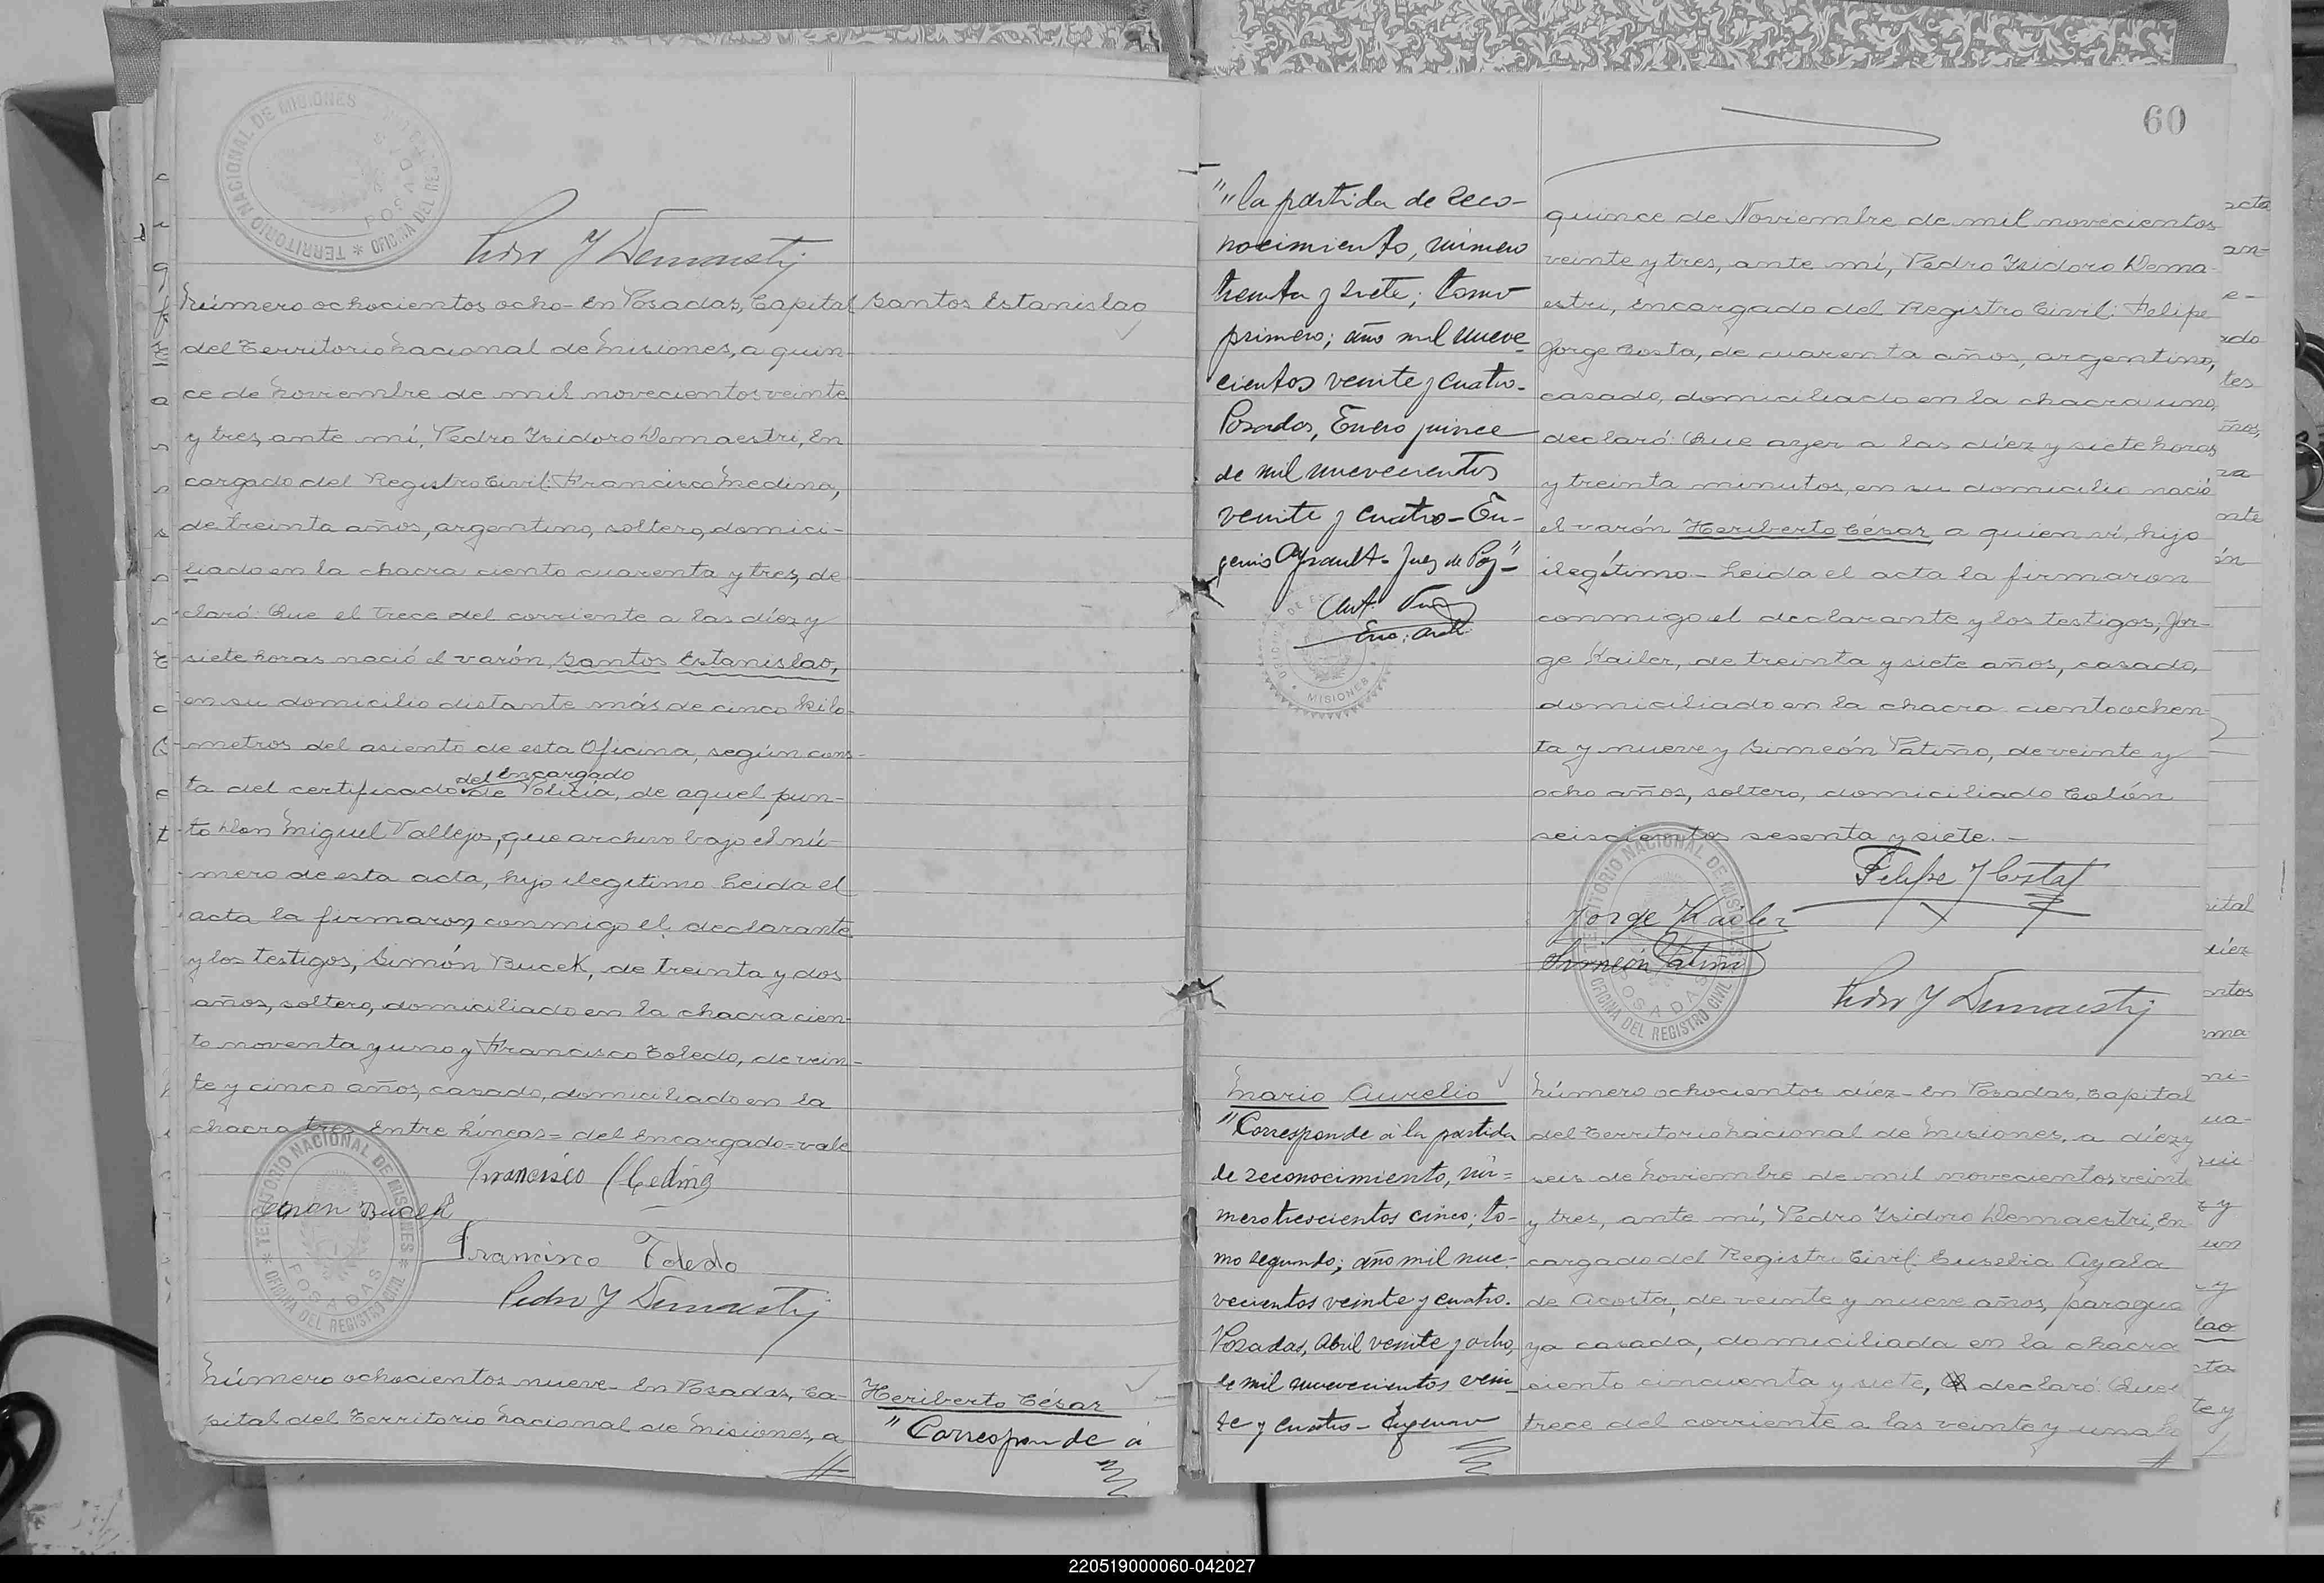 TERRITORIO NACIONAL DE MISIONES * OFICINA DEL REGISTRO CIVIL
POSADAS
Pedro Y Demaestri
Número ochocientos ocho - En Posadas, Capital
del Territorio Nacional de Misiones, a quin
ce de Noviembre de mil novecientos veinte
y tres, ante mí, Pedro Isidoro Demaestri, En
cargado del Registro Civil: Francisco Medina,
de treinta años, argentino, soltero, domici-
liado en la chacra ciento cuarenta y tres, de
claró: Que el trece del corriente a las diéz y
siete horas nació el varón, Santos Estanislao,
en su domicilio distante más de cinco kiló-
metros del asiento de esta Oficina, según cons-
del Encargado
ta del certificado de Policia, de aquel pun-
to Don Miguel Vallejos, que archivo bajo el nú-
mero de esta acta, hijo ilegítimo Leida el
acta la firmaron conmigo el declarante
y los testigos, Simón Bucek, de treinta y dos
años, soltero, domiciliado en la chacra cien-
to noventa y uno y Francisco Toledo, de vein-
te y cinco años, casado, domiciliado en la
chacra tres Entre líneas = del Encargado = vale
Francisco Medina
Simon Bucek
Francisco Toledo
Pedro Y Demaestri
TERRITORIO NACIONAL DE MISIONES * OFICINA DEL REGISTRO CIVIL *
POSADAS
Número ochocientos nueve - En Posadas, Ca-
pital del Territorio Nacional de Misiones, a
Santos Estanislao
Heriberto César
"Corresponde á
60
"la partida de reco-
nocimiento, número
treinta y siete; tomo
primero; año mil nueve
cientos veinte y cuatro.
Posadas, Enero quince
de mil nuevecientos
veinte y cuatro - Eu-
genio Ayrault - Juez de Paz"
MISIONES
quince de Noviembre de mil novecientos
veinte y tres, ante mí, Pedro Isidoro Dema-
estri, Encargado del Registro Civil: Felipe
Jorge Costa, de cuarenta años, argentino,
casado, domiciliado en la chacra uno,
declaró: Que ayer a las diéz y siete horas
y treinta minutos, en su domicilio nació
el varón Heriberto Cesar, a quien ví, hijo
ilegítimo - Leida el acta la firmaron
conmigo el declarante y los testigos, Jor-
ge Kailer, de treinta y siete años, casado,
domiciliado en la chacra ciento ochen-
ta y nueve y Simeón Patiño, de veinte y
ocho años, soltero, domiciliado Colón
seiscientos sesenta y siete. -
Felipe J Costa
Jorge Kailer
Simeón Patiño
Pedro Y Demaestri
TERRITORIO NACIONAL DE MISIONES * OFICINA DEL REGISTRO CIVIL
POSADAS
Mario Aurelio
"Corresponde á la partida
de reconocimiento, nú=
mero trescientos cinco; to-
mo segundo; año mil nue-
vecientos veinte y cuatro.
Posadas, Abril veinte y ocho,
de mil nuevecientos vein
te y cuatro - Eugenio
Número ochocientos diéz - En Posadas, Capital
del Territorio Nacional de Misiones, a diéz y
seis de Noviembre de mil novecientos veinte
y tres, ante mí, Pedro Isidoro Demaestri, En
cargado del Registro Civil: Eusebia Ayala
de Acosta, de veinte y nueve años, paragua
ya casada, domiciliada en la chacra
ciento cincuenta y siete, declaró: Que el
trece del corriente a las veinte y una
220519000060-042027